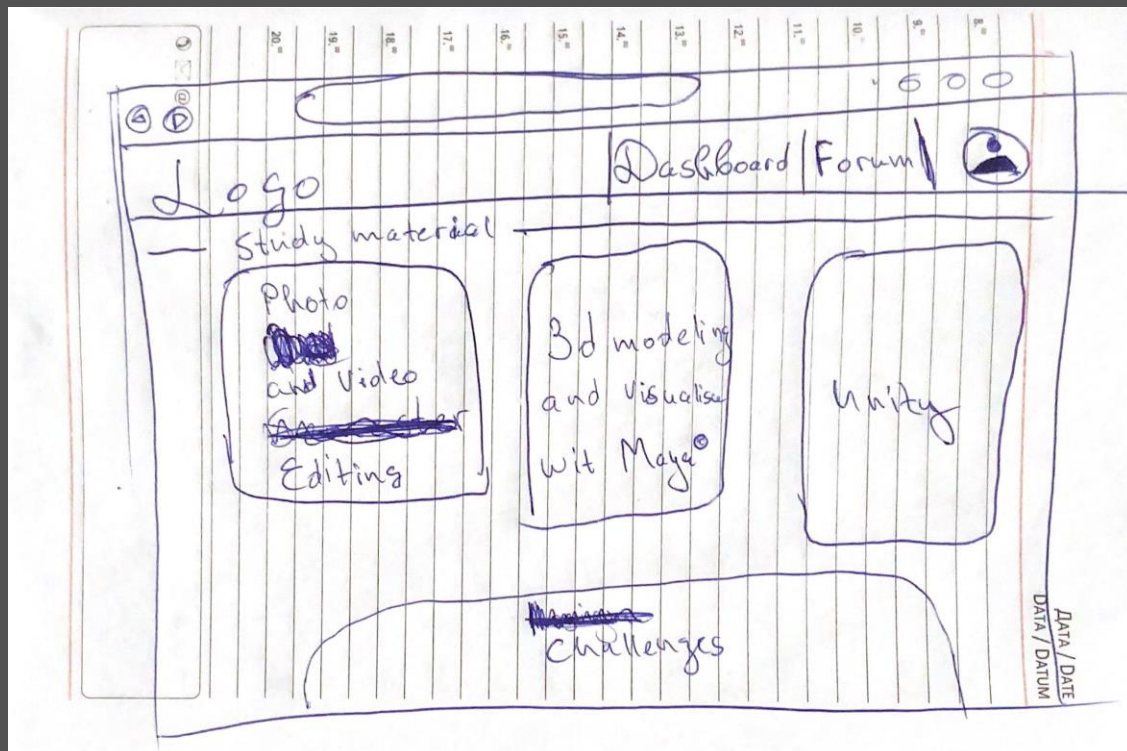 20.⁰⁰ 19.⁰⁰ 18.⁰⁰ 17.⁰⁰ 16.⁰⁰ 15.⁰⁰ 14.⁰⁰ 13.⁰⁰ 12.⁰⁰ 11.⁰⁰ 10.⁰⁰ 9.⁰⁰ 8.⁰⁰
@
Logo
Dashboard Forum
Study material
Photo
and Video
Editing
3d modeling
and Visualise
wit Maya©
Unity
Challenges
ДАТА / DATE
DATA / DATUM